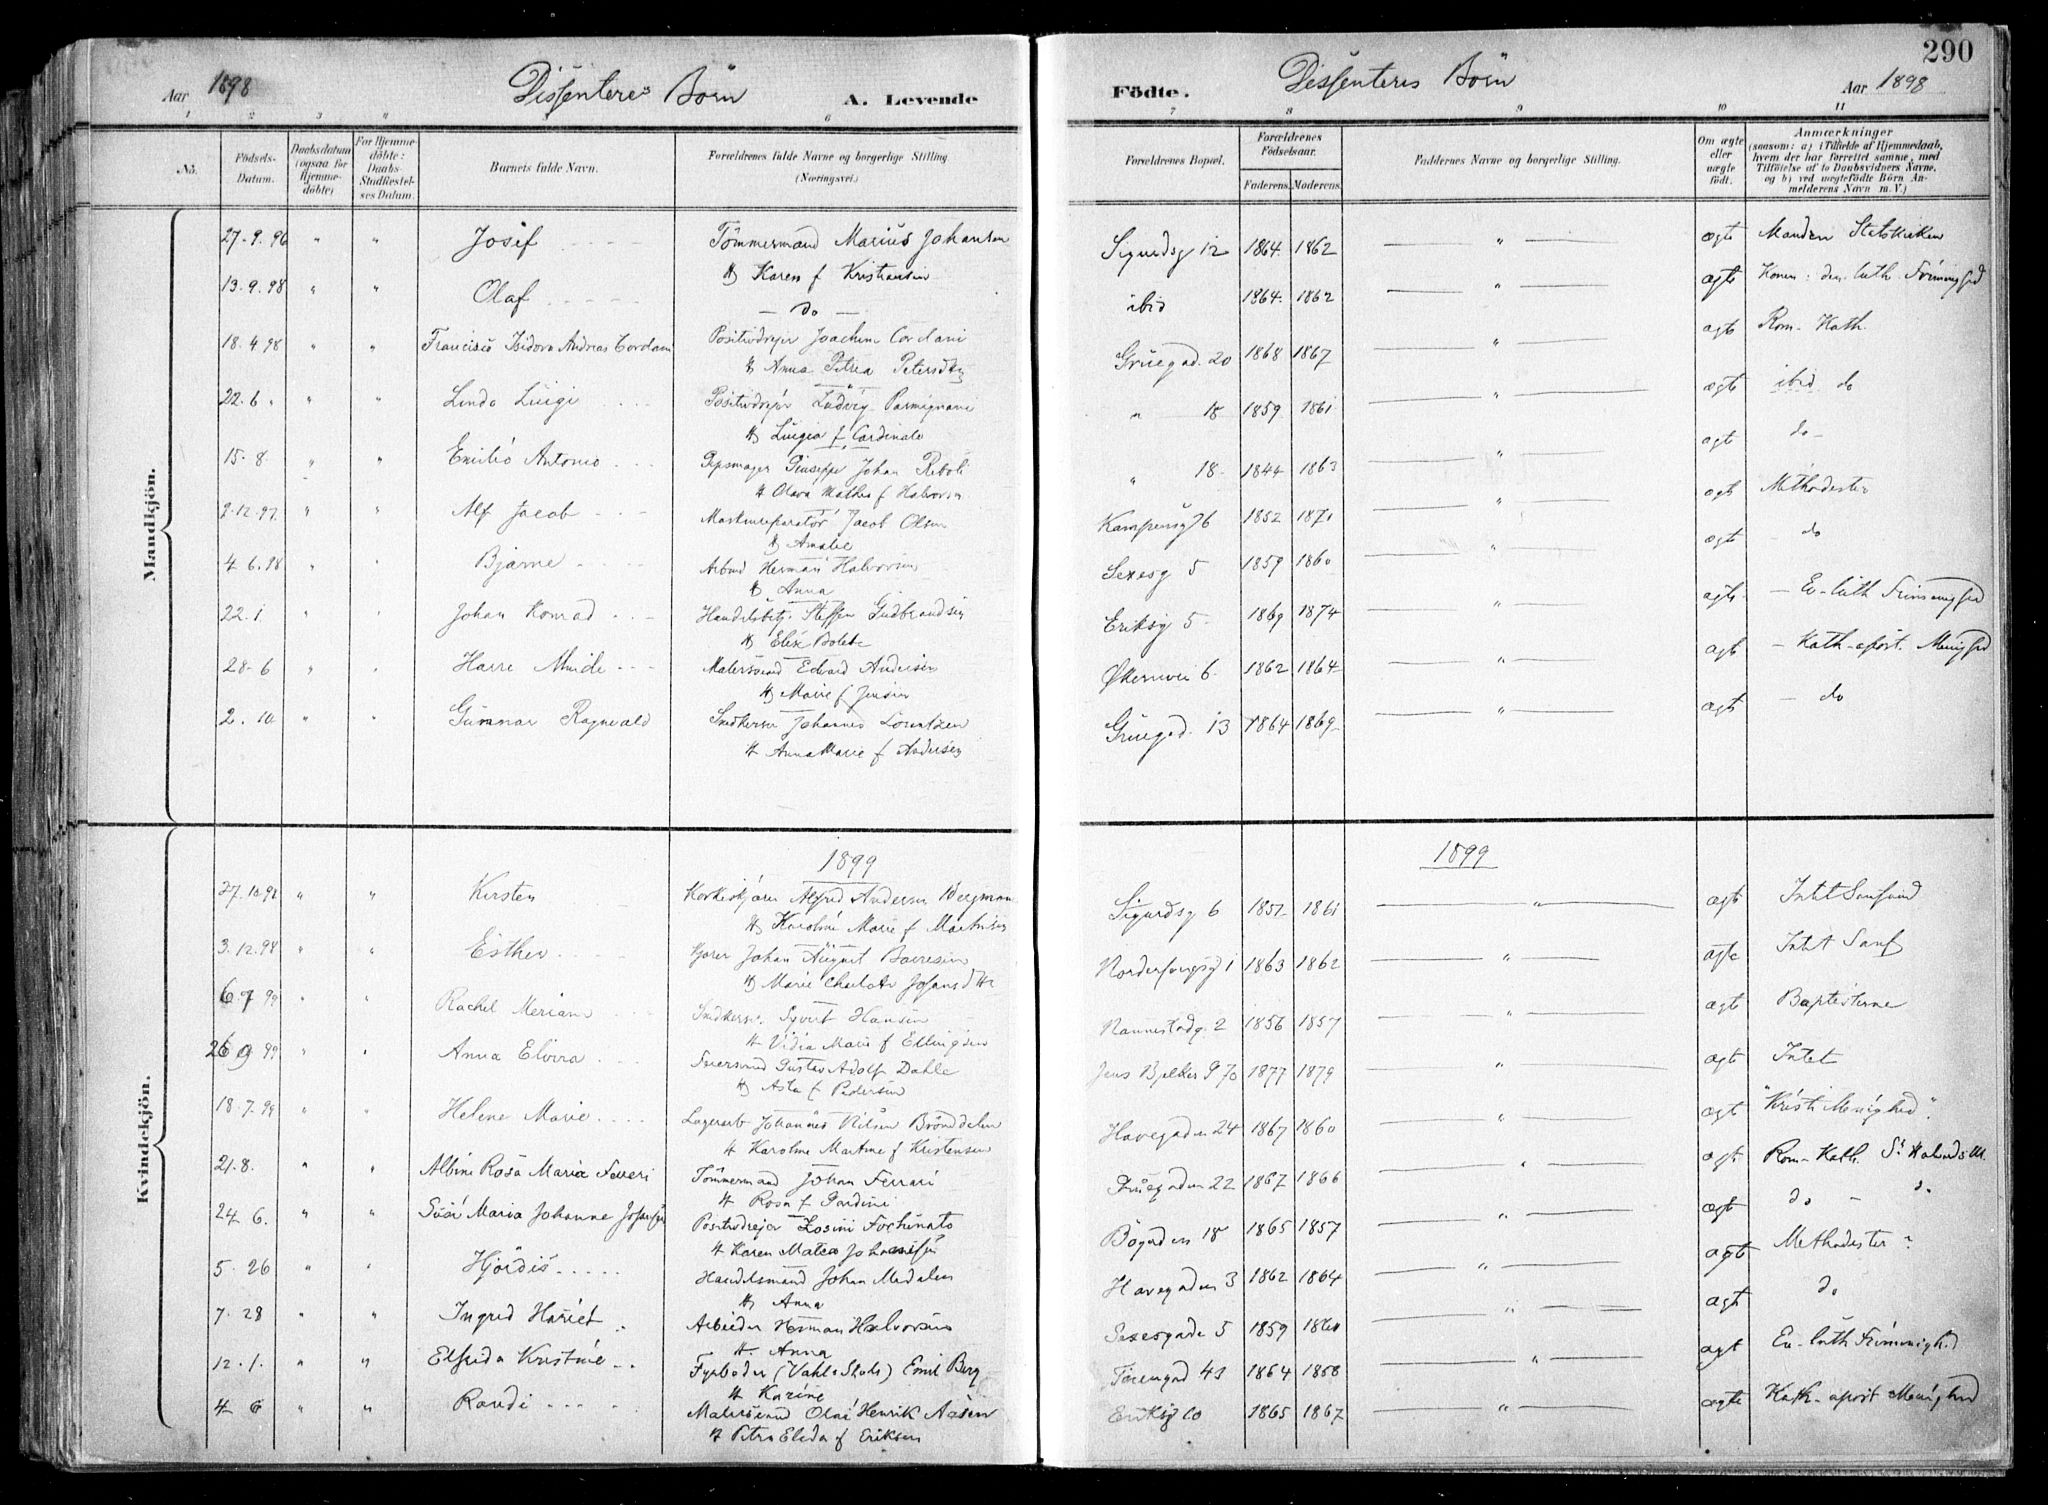 290
Aar 1898 Dissenteres Börn A. Levende
Födte. Dissenteres Börn Aar 1898
1 2 3 4 5 6
7 8 9 10 11
No.
Födsels-Datum.
Daabsdatum (ogsaa for Hjemme-döbte)
For Hjemme-döbte: Daabs-Stadfæstel-ses Datum.
Barnets fulde Navn.
Forældrenes fulde Navne og borgerlige Stilling. (Næringsvei.)
Forældrenes Bopæl.
Forældrenes Födselsaar.
Faderens. Moderens.
Faddernes Navne og borgerlige Stilling.
Om ægte eller uægte födt.
Anmærkninger (saasom: a) i Tilfælde af Hjemmedaab, hvem der har forrettet samme, med Tilföielse af to Daabsvidners Navne, og b) ved uægtefödte Börn An-melderens Navn m. V.)
Mandkjön.
27-9-96 " " Josef Tömmermand Marius Johansen Sigurdsg 12 1864 1862 " ægte Manden Statskirken
H Karen f Kristiansen
13.9.98 " " Olaf — Do — ibid 1864 1862 " ægte Konen: den luth. Frimenighed
18.4.98 " " Francisco Isidoro Andreas Cordani Positivdreier Joachim Cordani Grüegad. 20 1868 1867 " ægte Rom-Kath.
H Anna Petrea Petersdtr
22.6 " " Lindo Luigi Positivdreier Ludvig Parmigiani " 18 1859 1861 " ægte ibid. do
H Luigia f Cardinale
15.8 " " Emilio Antonio Gipsmager Giuseppe Johan Riboli " 18 1844 1863 " ægte do
H Olava Mathea f Halvorsen
2.12.97 " " Alf Jacob Maskinreparatör Jacob Olsen Kampensg 76 1852 1871 " ægte Methodister
H Amalie
4.6.98 " " Bjarne Arbmd Herman Halvorsen Sexesg 5 1859 1860 " ægte do
H Anna
22.1. " " Johan Konrad Handelsbetj. Steffen Gudbrandsen Eriksg 5 1869 1874 " ægte Ev-luth Frimenighed
H Elise Bolette
28-6 " " Harre Malersvend Edvard Andersen Økernvei 6 1862 1864 " ægte Kath-apost. Menighed
H Marie f Jensen
2.10 " " Gunnar Ragnvald Snedkersv Johannes Lorentzen Grüegad. 13 1864 1869 " ægte do
H Anna Marie f Andersen
Kvindekjön.
1899 1899
27.10.98 " " Kirsten Korkeskjærer Alfred Andersen Bergman Sigurdsg 6 1857 1861 " ægte Intet Samfund
H Karoline Marie f Martinsen
3.12.98 " " Esther Kjörer Johan August Börresen 1 1863 1862 " ægte Intet Samf
H Marie Charlotte
6.7 99 " " Rachel Meriam Snedkersv. Syvert Hansen Rannestadg. 2 1856 1857 " ægte Baptisterne
H Vidia Marie f Ellingsen
26 9 99 " " Anna Elvira Gustav Adolf Dahle Jens Bjelkes g 70 1877 1879 " ægte Intet
H Asta f Pedersen
18.7.99 " " Helene Marie Lagerarb Johannes Nilsen Brönddalen Havegaden 24 1867 1860 " ægte "Kristi Menighed".
H Karoline Martine f Kristensen
21.8. " " Albine Rosa Maria Ferreri Tömmermand Johan Ferrari Grüegaden 22 1867 1866 " ægt. Rom-Kath. St Halvards M.
H Rosa f Gardini
24 6. " " Maria Johanne Positivdreier Zosini Fortunato Bögaden 18 1865 1857 " ægte do — do
H Karen Matea
5.26 " " Hjördis Handelsmand Johan Medalen Havegaden 3 1862 1864 " ægte Methodister
H Anna
7.28 " " Ingrid Hariet Arbeider Herman Halvorsen Sexesgade 5 1859 1860 " ægt do
H. Anna
12.1. " " Elfrida Kristine Fyrböder (Vahls Skole) Emil Berg 43 1864 1858 " ægt Ev-luth Frimenighed
H Karine
4 6 " " Randi Malersvend Olai Henrik Aasen Eriksg 10 1865 1867 " ægte Kath. apost Menighed
H Petra Elida f Eriksen